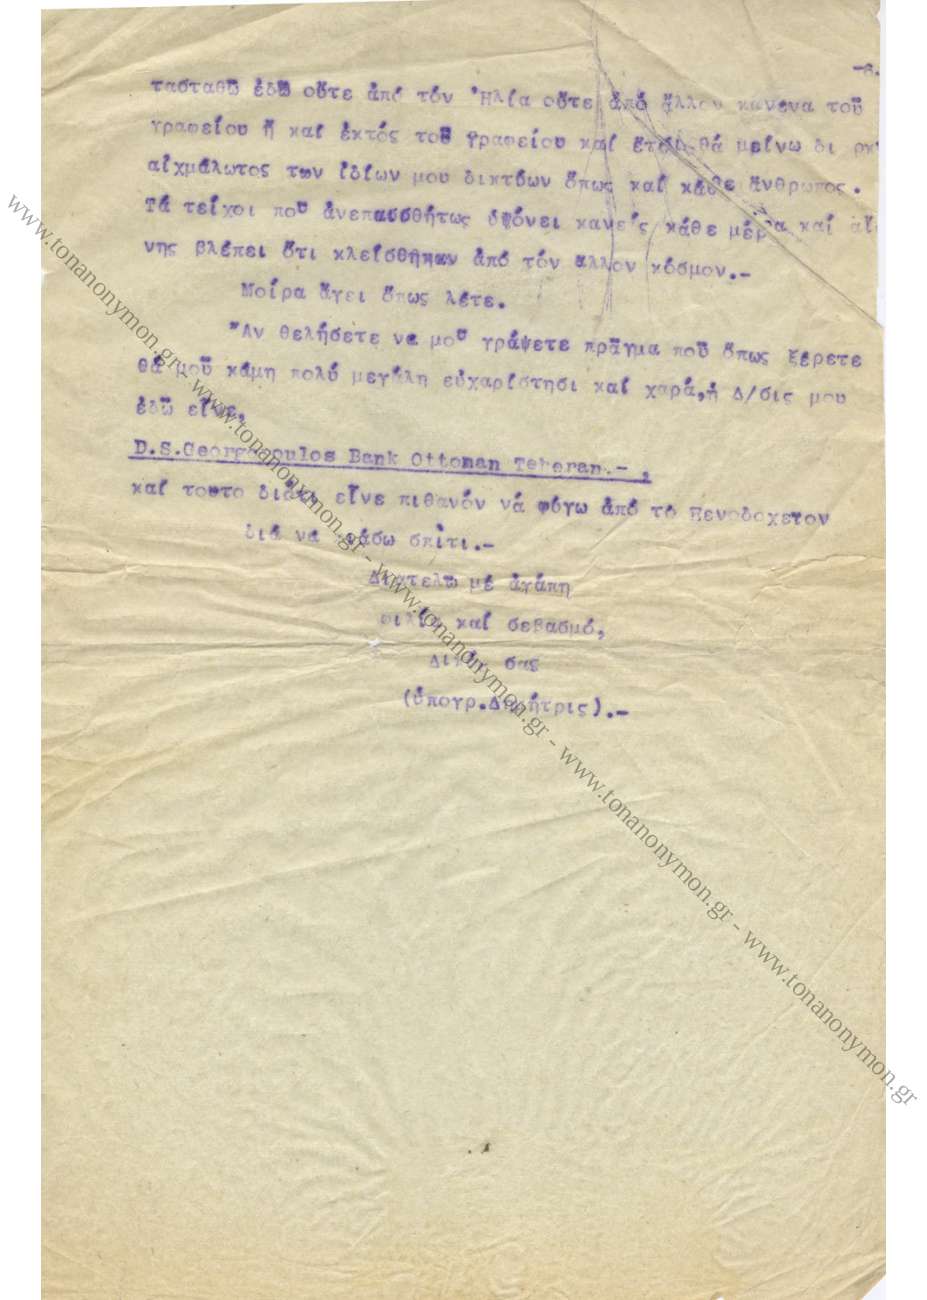 -6.
τασταθῶ ἐδῶ οὔτε ἀπό τόν Ἠλία οὔτε ἀπό ἄλλον κανενα τοῦ
γραφείου ἤ καί ἐκτός τοῦ γραφείου καί ἔτσι θά μείνω
αἰχμάλωτος των ἰδίων μου δικτύων ὅπως καί κάθε ἄνθρωπος.
Τά τείχοι ποῦ ἀνεπαισθήτως ὑψόνει κανείς κάθε μέρα καί
νης βλέπει ὅτι κλείσθηκαν ἀπό τόν αλλον κόσμον.-
Μοίρα ἄγει ὅπως λέτε.
Ἄν θελήσετε να μοῦ γράψετε πρᾶγμα ποῦ ὅπως ξέρετε
θά μοῦ κάμη πολύ μεγάλη εὐχαρίστησι καί χαρά,ἡ Δ/σις μου
ἐδῶ εἶνε,
D.S.Georgopoulos Bank Ottoman Teheran.- ,
καί τουτο διότι εἶνε πιθανόν νά φύγω ἀπό τό Ξενοδοχετον
διά να πάσω σπίτι.-
Διατελῶ μέ ἀγάπη
φιλία καί σεβασμό,
Δικός σας
(ὑπογρ.Δημήτρις).-
www.tonanonymon.gr - www.tonanonymon.gr - www.tonanonymon.gr - www.tonanonymon.gr - www.tonanonymon.gr